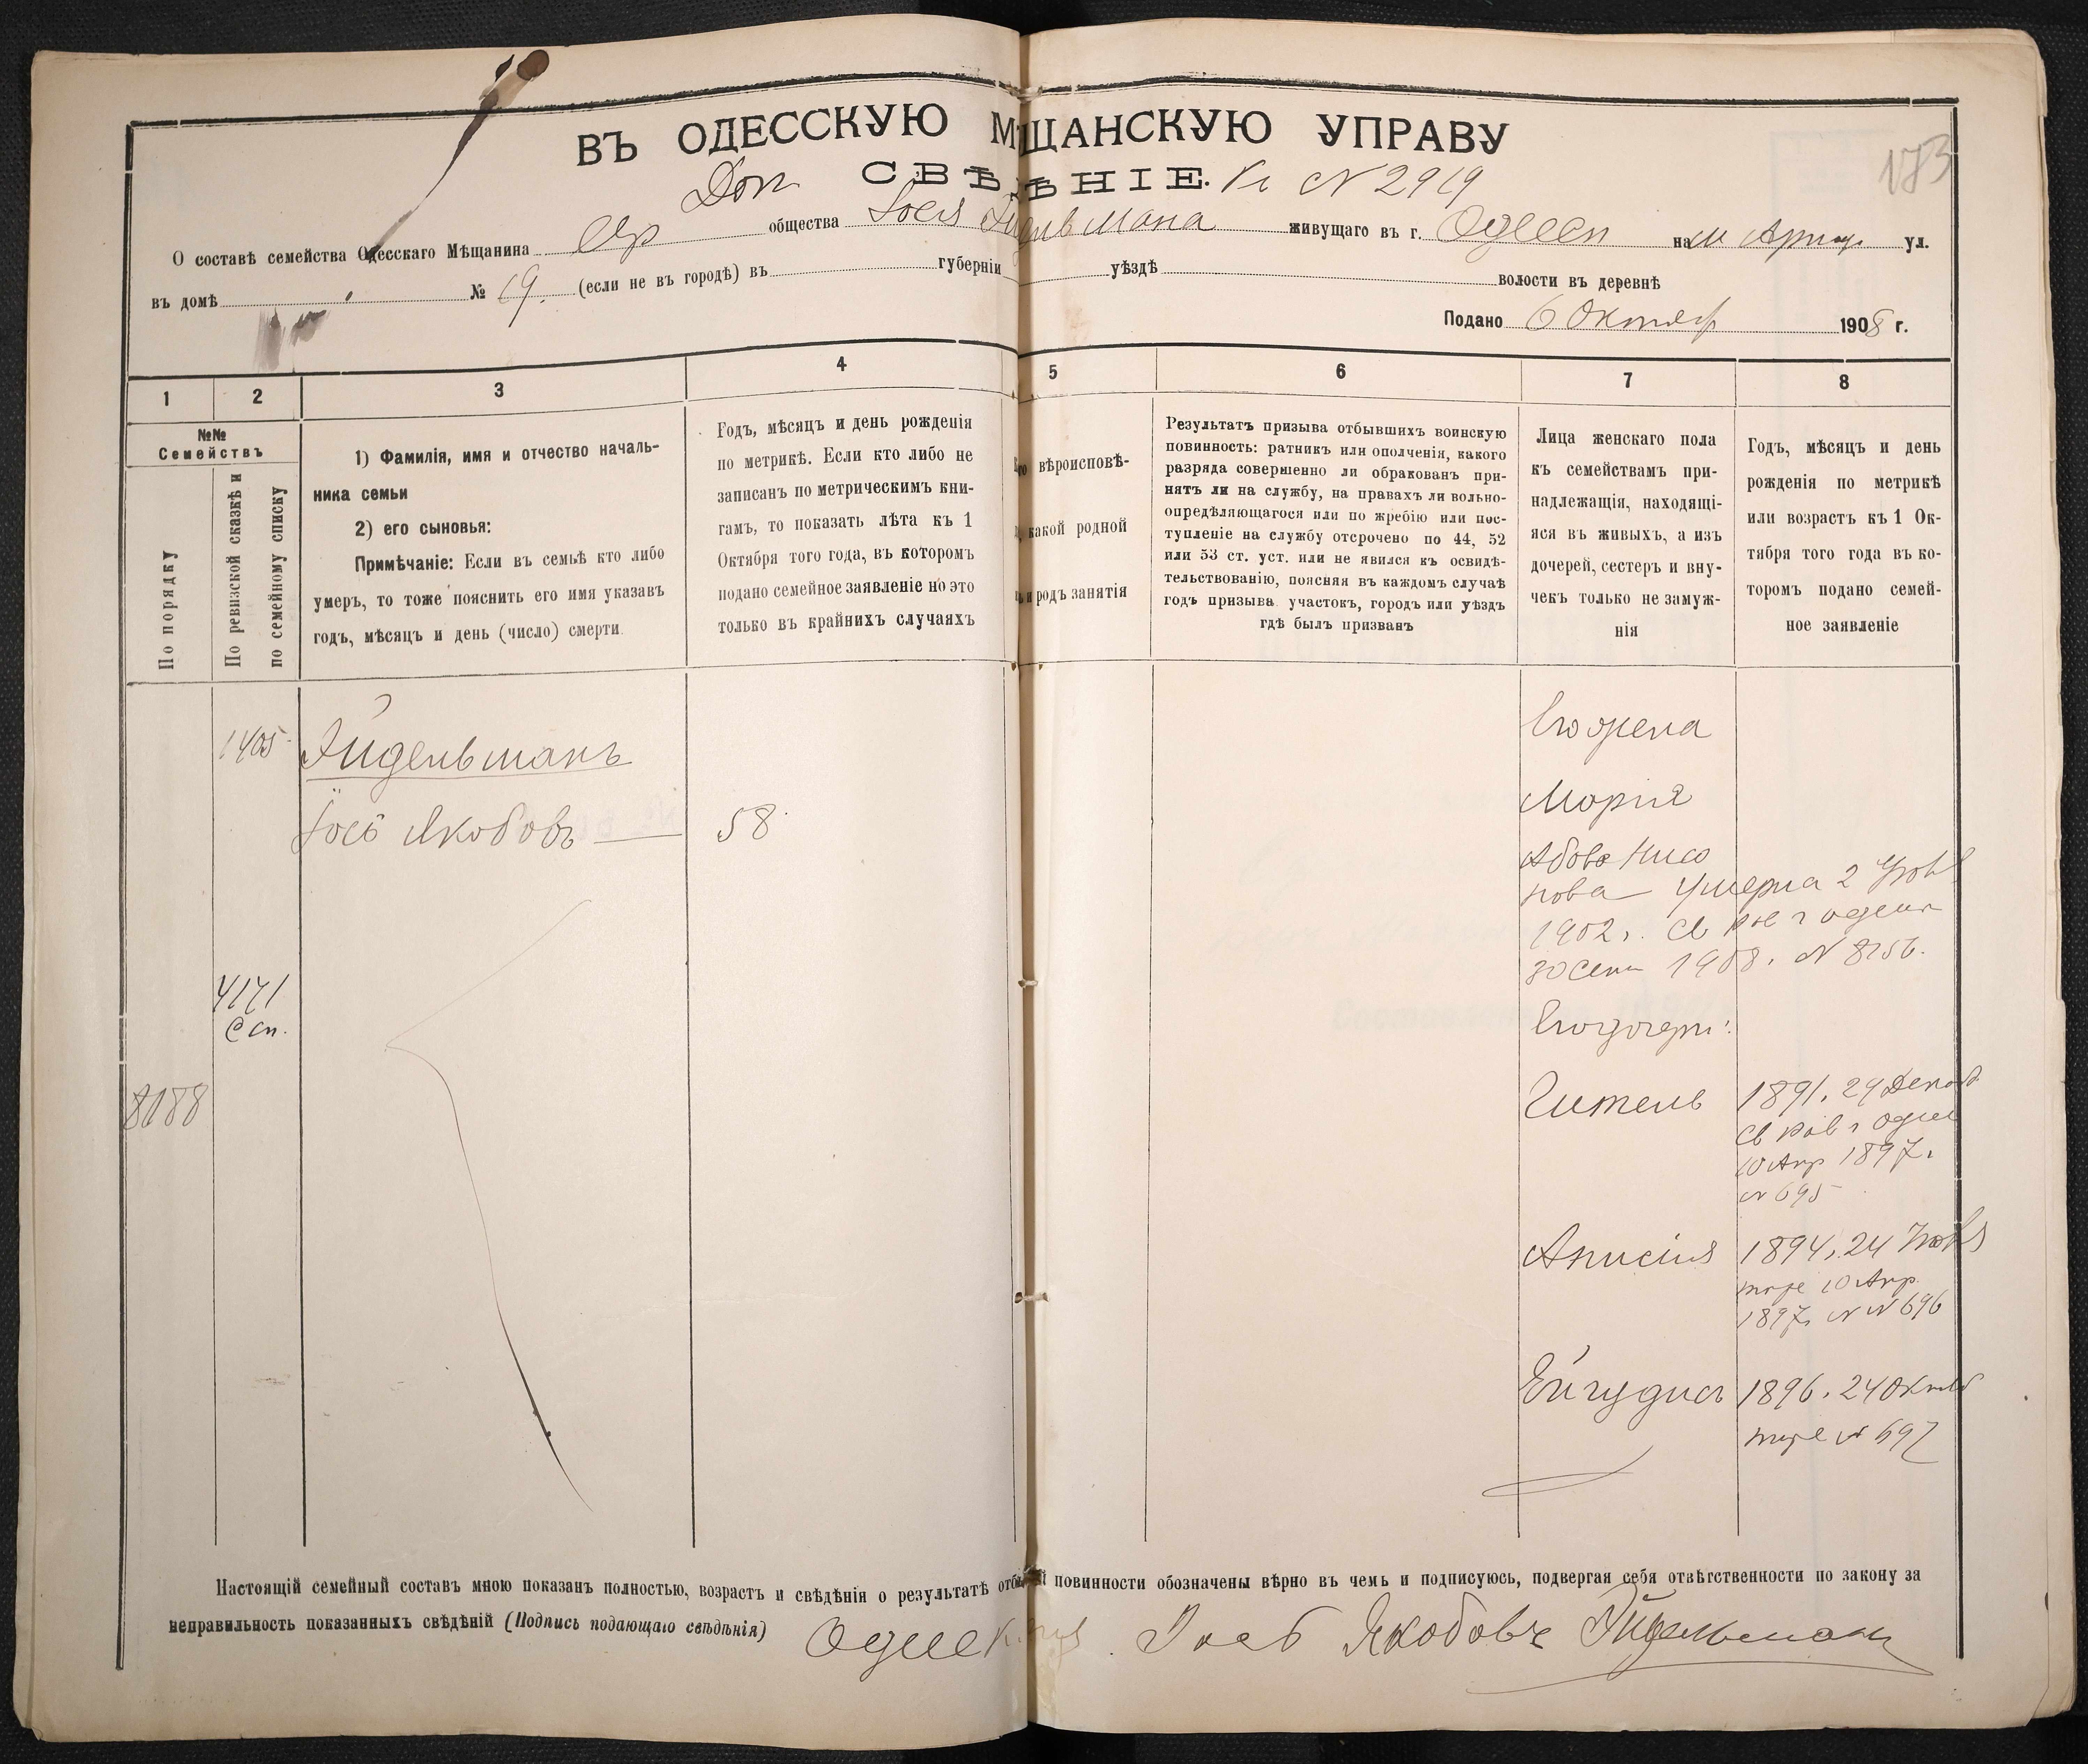 173
ВЪ ОДЕССКУЮ МѢЩАНСКУЮ УПРАВУ
Доп СВѢДѢНІЕ. Къ № 2919
О составѣ семейства Одесскаго Мѣщанина Евр общества Іося Эйдельмана живущаго въ г. Одессѣ на М Арнаут ул.
въ домѣ № 19. (если не въ городѣ) въ губерніи уѣздѣ волости въ деревнѣ
Подано 6 Октяб 1908 г.
1 2 3 4 5 6 7 8
№№ Семействъ
По порядку
По ревизской сказкѣ и по семейному списку
1) Фамилія, имя и отчество началь-
ника семьи
2) его сыновья:
Примѣчаніе: Если въ семьѣ кто либо
умеръ, то тоже пояснить его имя указавъ
годъ, мѣсяцъ и день (число) смерти
Годъ, мѣсяцъ и день рожденія
по метрикѣ. Если кто либо не
записанъ по метрическимъ кни-
гамъ, то показать лѣта къ 1
Октября того года, въ которомъ
подано семейное заявленіе но это
только въ крайнихъ случаяхъ
вѣроисповѣ-
какой родной
и родъ занятія
Результатъ призыва отбывшихъ воинскую
повинность: ратникъ или ополченія, какого
разряда совершенно ли обракованъ при-
нятъ ли на службу, на правахъ ли вольно-
опредѣляющагося или по жребію или пос-
тупленіе на службу отсрочено по 44, 52
или 53 ст. уст. или не явился къ освидѣ-
тельствованію, поясняя въ каждомъ случаѣ
годъ призыва участокъ, городъ или уѣздъ
гдѣ былъ призванъ
Лица женскаго пола
къ семействамъ при-
надлежащія, находящі-
яся въ живыхъ, а изъ
дочерей, сестеръ и вну-
чекъ только не замуж-
нія
Годъ, мѣсяцъ и день
рожденія по метрикѣ
или возрастъ къ 1 Ок-
тября того года въ ко-
торомъ подано семей-
ное заявленіе
1405 Эйдельманъ
Іось Якобовъ — 58
4171
С сп.
8088
Его жена
Марія
Абова Нисо
нова умерла 2 Ноя
1902 г. Св Рав г Одессы
30 Сент 1908. № 8156.
Его дочери:
Гитель 1891. 24 Декаб
Св Рав г Одес
10 Апр 1897.
№ 695
Анисія 1894. 24 Ноя
тоже 10 Апр
1897 № 696
Ейгудис 1896. 24 Октяб
тоже № 697
Настоящій семейный составъ мною показанъ полностью, возрастъ и свѣдѣнія о результатѣ повинности обозначены вѣрно въ чемъ и подписуюсь, подвергая себя отвѣтственности по закону за
неправильность показанныхъ свѣдѣній (Подпись подающаго свѣдѣнія) Іось Якобовъ Эйдельманъ